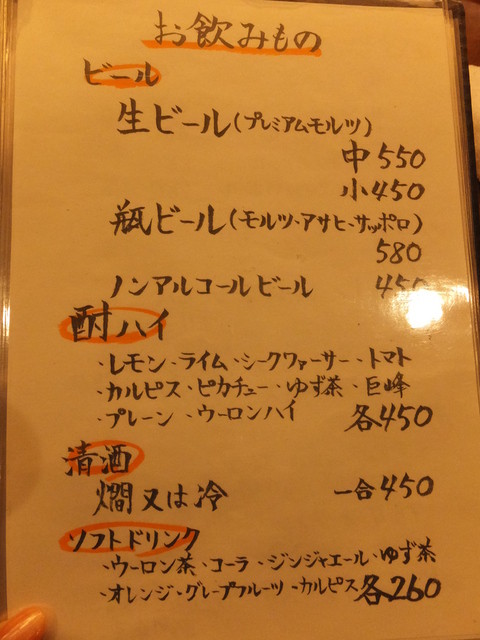 お飲みもの
ビール
生ビール(プレミアムモルツ)
中550
小450
瓶ビール(モルツ・アサヒ・サッポロ)
580
ノンアルコールビール 450
酎ハイ
・レモン・ライム・シークヮーサー・トマト
・カルピス・ピカチュー・ゆず茶・巨峰
・プレーン・ウーロンハイ 各450
清酒
燗又は冷 一合450
ソフトドリンク
・ウーロン茶・コーラ・ジンジャエール・ゆず茶
・オレンジ・グレープフルーツ・カルピス 各260